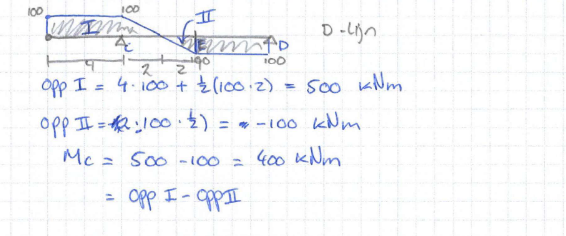 100 100 II
I E D D-lijn
C
4 2 2 100 100
opp I = 4·100 + ½(100·2) = 500 kNm
opp II = 2·100·½) = -100 kNm
Mc = 500 - 100 = 400 kNm
= opp I - opp II